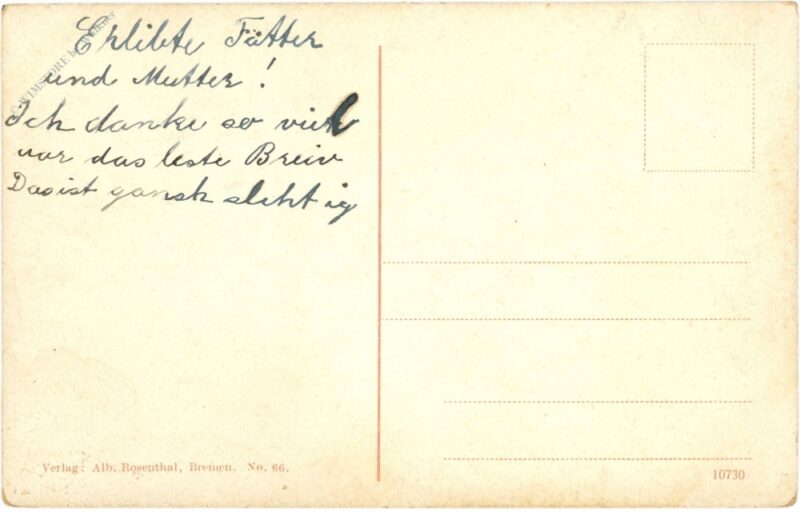 Ehlibte Fätter
und Mutter!
Ich danke so viel
vor das leste Breiv
Das ist gansk slekt ig
Verlag: Alb. Rosenthal, Bremen. No. 66.
10730